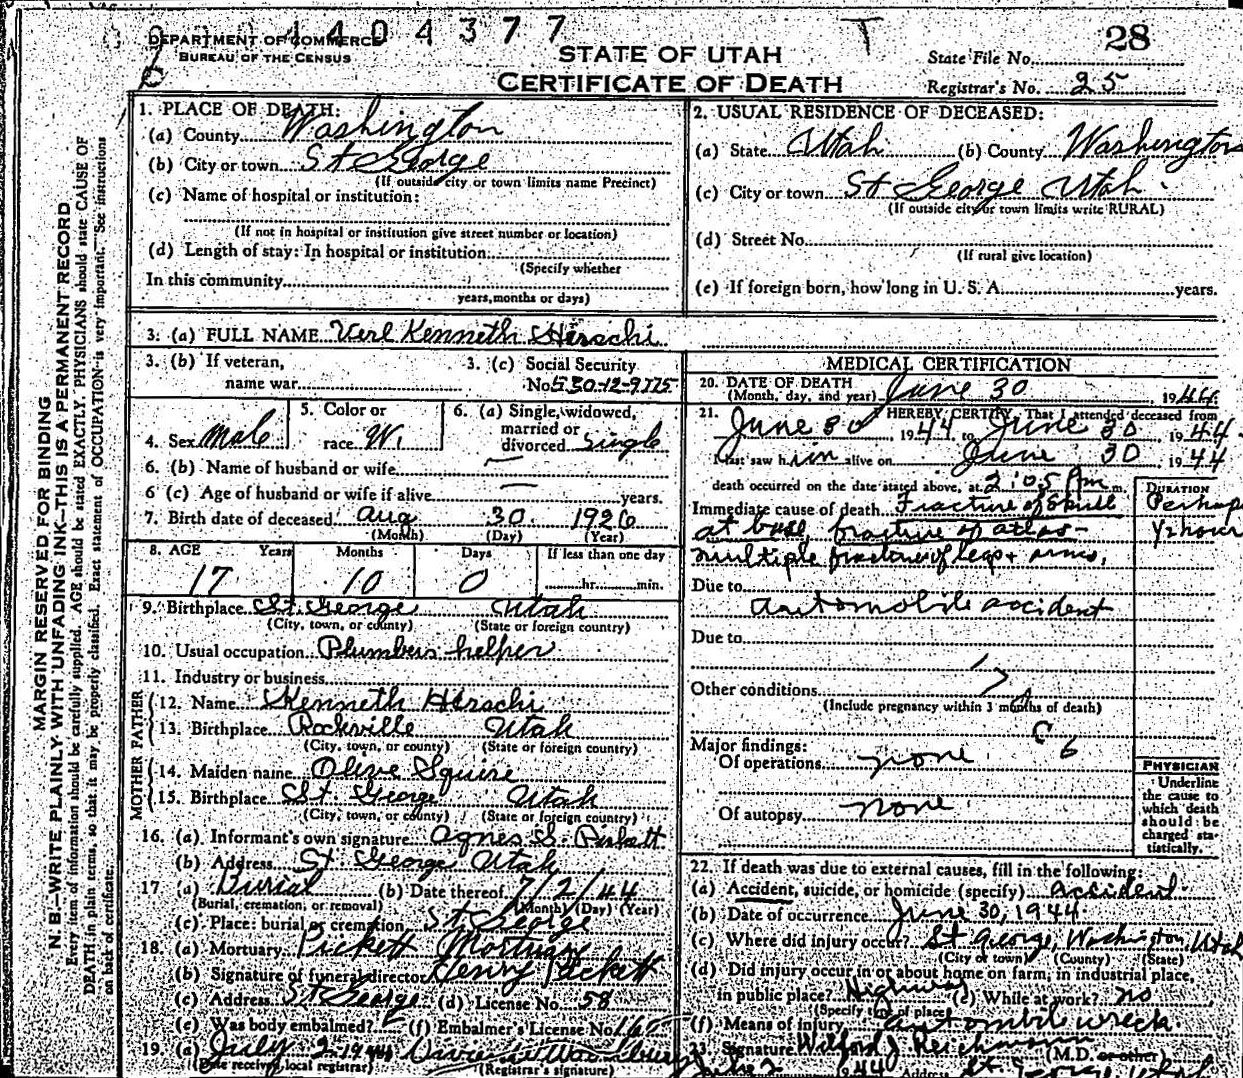 1404377
T
DEPARTMENT OF COMMERCE
BUREAU OF THE CENSUS
STATE OF UTAH
CERTIFICATE OF DEATH
State File No. 28
Registrar's No. 25
MARGIN RESERVED FOR BINDING
N. B.—WRITE PLAINLY WITH UNFADING INK—THIS IS A PERMANENT RECORD
Every item of information should be carefully supplied. AGE should be stated EXACTLY. PHYSICIANS should state CAUSE OF
DEATH in plain terms, so that it may be properly classified. Exact statement of OCCUPATION is very important. See instructions
on back of certificate.
1. PLACE OF DEATH:
(a) County Washington
(b) City or town St George
(If outside city or town limits name Precinct)
(c) Name of hospital or institution:
(If not in hospital or institution give street number or location)
(d) Length of stay: In hospital or institution
(Specify whether
In this community
years, months or days)
2. USUAL RESIDENCE OF DECEASED:
(a) State Utah (b) County Washington
(c) City or town St George Utah
(If outside city or town limits write RURAL)
(d) Street No.
(If rural give location)
(e) If foreign born, how long in U. S. A. years.
3. (a) FULL NAME Verl Kenneth Hirschi
3. (b) If veteran, name war
3. (c) Social Security
No. 530-12-9775
4. Sex Male
5. Color or race W.
6. (a) Single, widowed, married or divorced single
6. (b) Name of husband or wife —
6 (c) Age of husband or wife if alive — years.
7. Birth date of deceased Aug 30 1926
(Month) (Day) (Year)
8. AGE Years Months Days If less than one day
17 10 0 hr. min.
9. Birthplace St. George Utah
(City, town, or county) (State or foreign country)
10. Usual occupation Plumbers helper
11. Industry or business
FATHER
12. Name Kenneth Hirschi
13. Birthplace Rockville Utah
(City, town, or county) (State or foreign country)
MOTHER
14. Maiden name Olive Squire
15. Birthplace St George Utah
(City, town, or county) (State or foreign country)
16. (a) Informant's own signature Agnes S. Pickett
(b) Address St. George Utah
17 (a) Burial (b) Date thereof 7/2/44
(Burial, cremation, or removal) (Month) (Day) (Year)
(c) Place: burial or cremation St George
18. (a) Mortuary Pickett Mortuary
(b) Signature of funeral director Henry Pickett
(c) Address St George (d) License No. 58
(e) Was body embalmed? (f) Embalmer's License No.
19. (a) July 2 1944
(Date received local registrar) (Registrar's signature)
MEDICAL CERTIFICATION
20. DATE OF DEATH
(Month, day, and year) June 30, 1944
21. I HEREBY CERTIFY, That I attended deceased from
June 30, 1944 to June 30, 1944
I last saw him alive on June 30, 1944
death occurred on the date stated above, at 2:05 Pm m.
DURATION
Immediate cause of death Fracture of Skull Perhaps
at base, fracture of atlas— ½ hour
multiple fracture of legs + arms.
Due to
automobile accident
Due to
Other conditions
(Include pregnancy within 3 months of death)
Major findings:
Of operations none
Of autopsy none
PHYSICIAN
Underline
the cause to
which death
should be
charged sta-
tistically.
22. If death was due to external causes, fill in the following:
(a) Accident, suicide, or homicide (specify) accident
(b) Date of occurrence June 30, 1944
(c) Where did injury occur? St George, Washington, Utah
(City or town) (County) (State)
(d) Did injury occur in or about home on farm, in industrial place,
in public place? Highway (e) While at work? no
(Specify type of place)
(f) Means of injury automobile wreck.
23 Signature Wilford J Reichmann (M.D. or other)
1944 Address St. George Utah